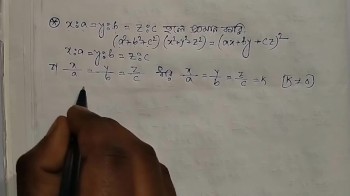 * x:a = y:b = z:c হলে প্রমাণ করো:
(a²+b²+c²)(x²+y²+z²) = (ax+by+cz)²
x:a = y:b = z:c
বা x/a = y/b = z/c ধরি, x/a = y/b = z/c = k [k≠0]